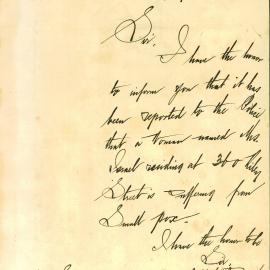 Sir,
I have the honor
to inform you that it has
been reported to the Police
that a Woman named Mrs.
Israel residing at 300
Street is suffering from
Small pox.
I have the honor to be
Sir,